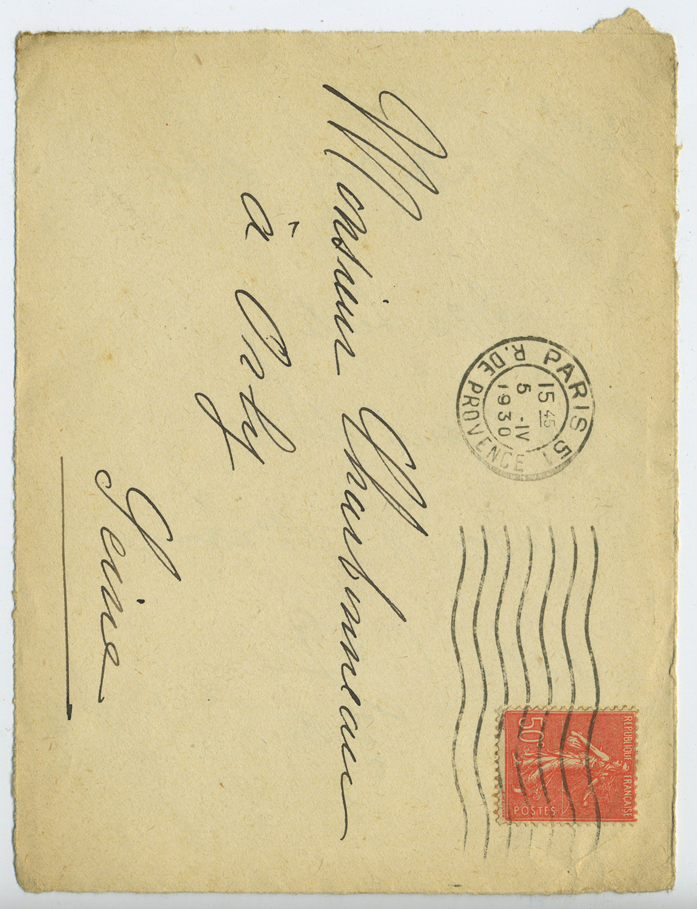 PARIS 51
R. DE PROVENCE
15 45
5 -IV
1930
REPUBLIQUE FRANÇAISE
50c
POSTES
Monsieur Charbonneau
à Orly
Seine